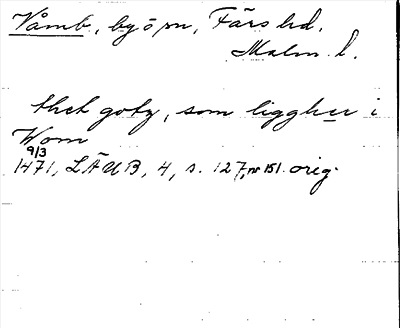 Våmb, by ö sn, Färs hd.
Malm. l.
thet gotz, som liggher i
Wom
9/3
1471, LÄUB, 4, s. 127, nr 151. orig.